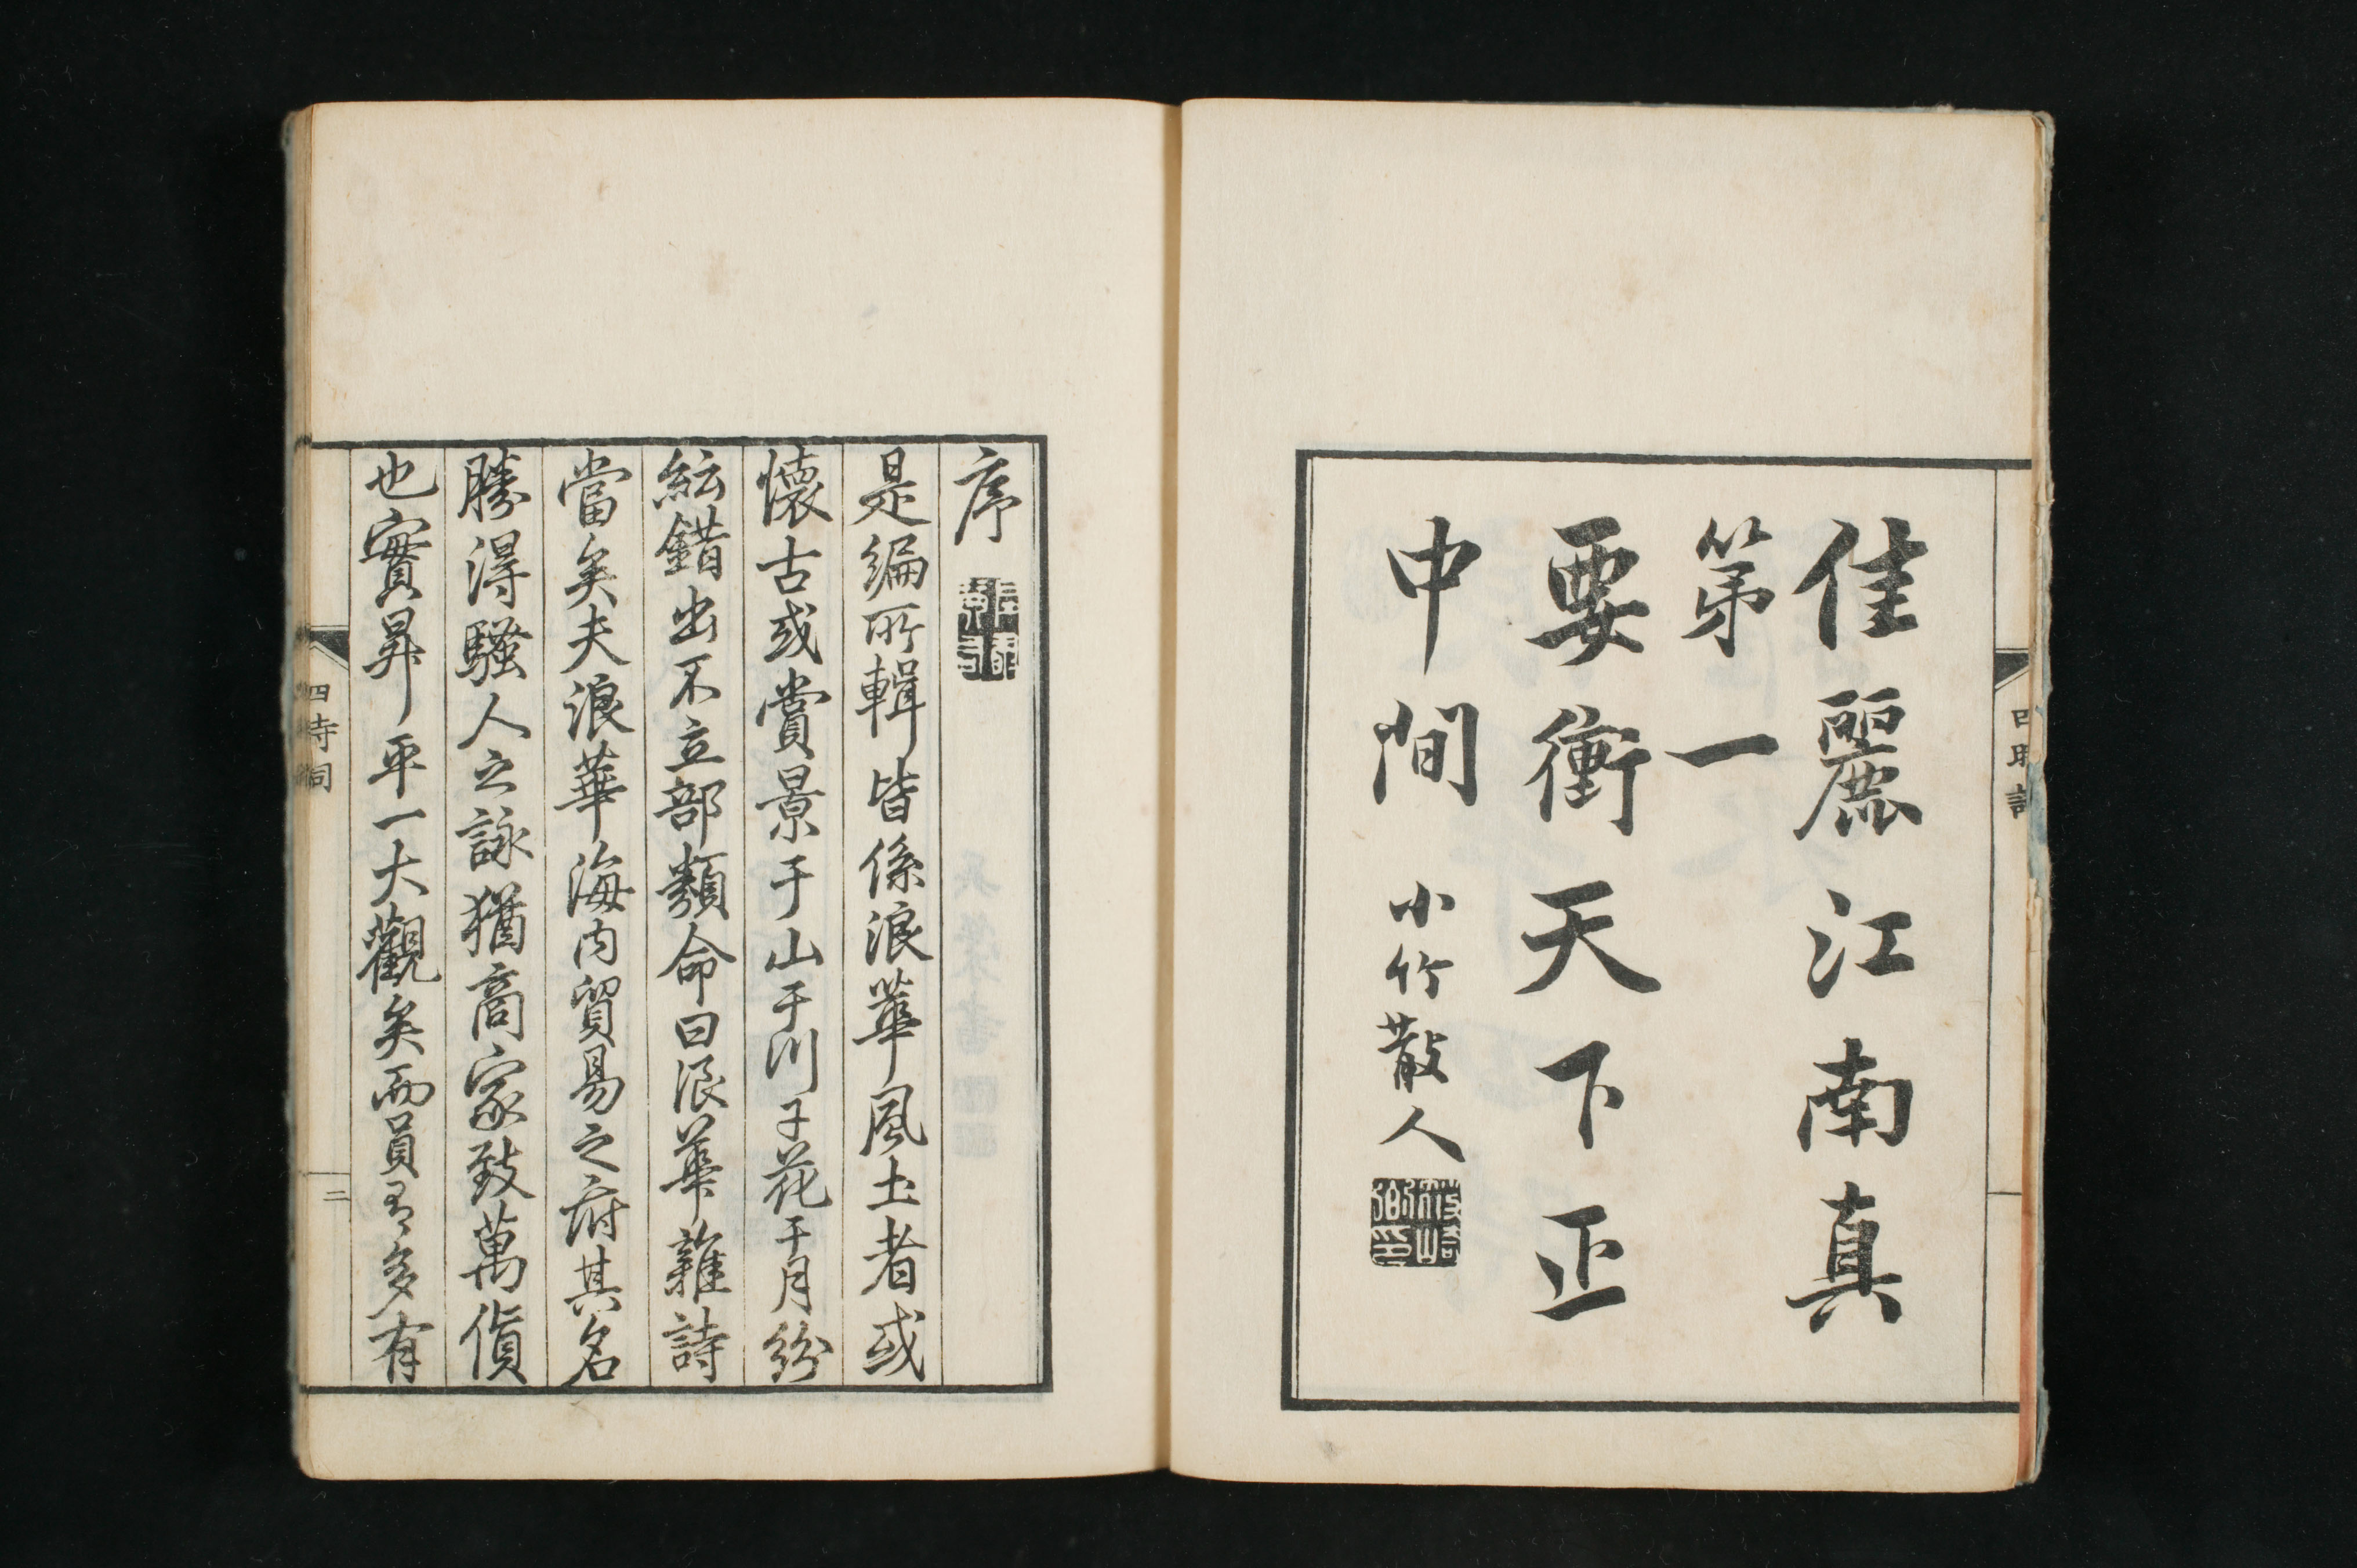 佳麗江南真
第一
要衝天下正
中間
小竹散人
序
是編所輯皆係浪華風土者或
懷古或賞景于山于川于花于月紛
紜錯出不立部類命曰浪華雜詩
當矣夫浪華海内貿易之府其名
勝得騷人之詠猶商家致萬貨
也實昇平一大觀矣而員多有
四時詞
二